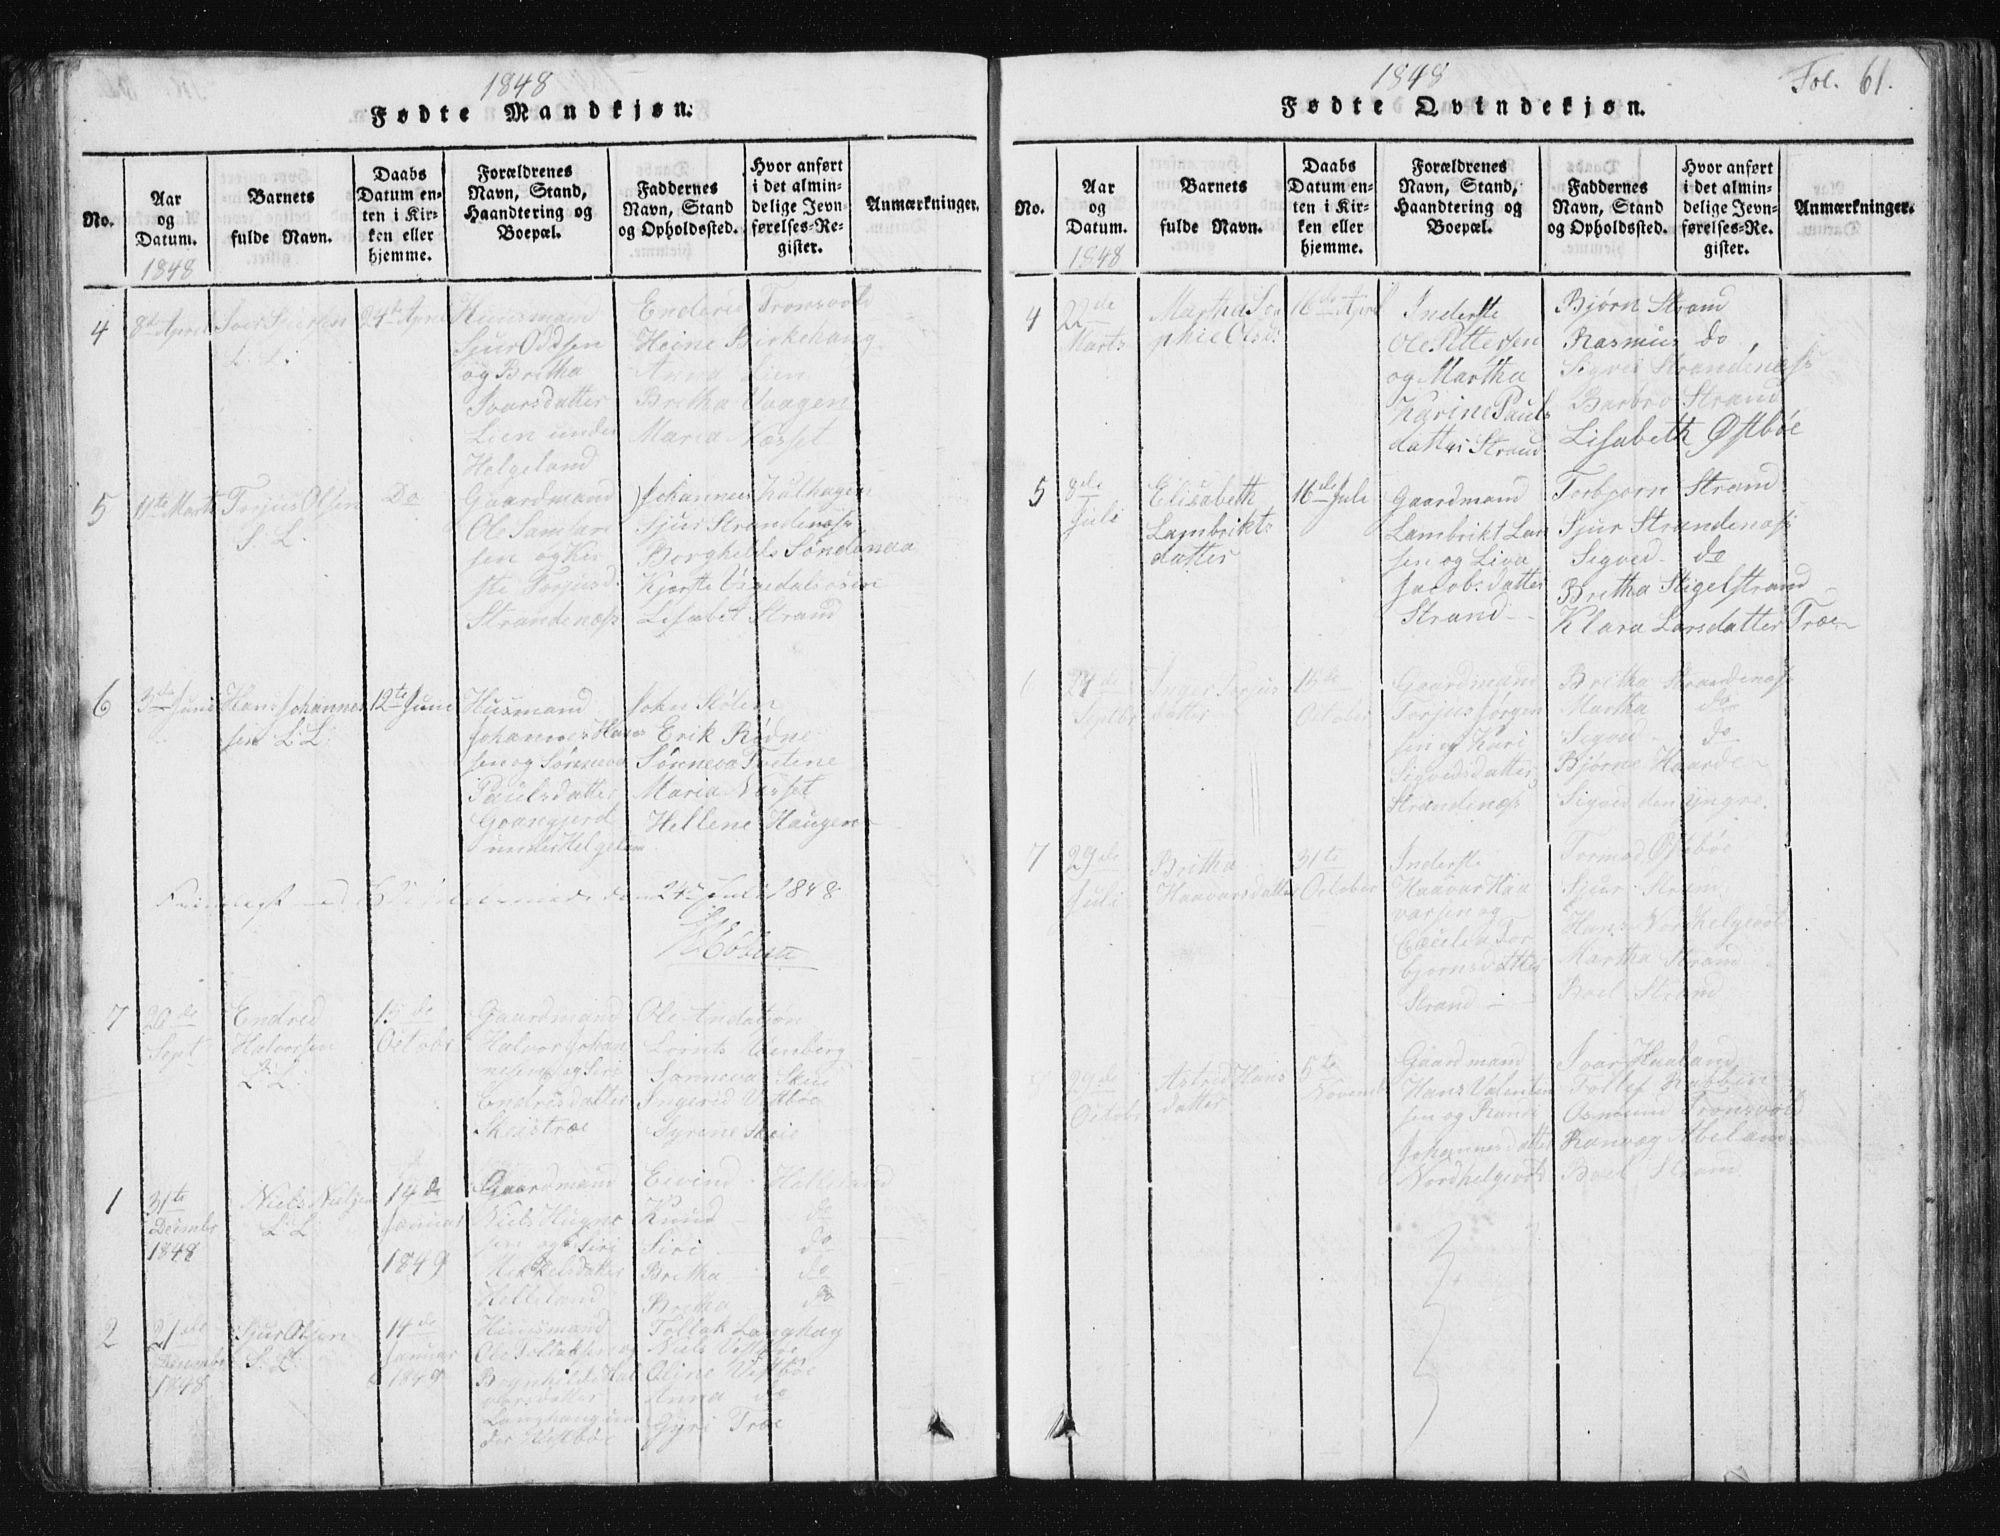 1848
Fødte Mandkjøn.
No.
Aar
og
Datum.
1848
Barnets
fulde Navn.
Daabs
Datum en-
ten i Kir-
ken eller
hjemme.
Forældrenes
Navn, Stand,
Haandtering og
Boepæl.
Faddernes
Navn, Stand
og Opholdssted.
Hvor anført
i det almin-
delige Jevn-
førelses-Re-
gister.
Anmærkninger.
4
8de April
24de April
Huusmand
Sjur Oddsen
og Britha
Ivarsdatter
Lien under
Helgeland
Endered Tronsvold
Heine Birkehaug
Anna Lien
Britha Vaagen
Maria Næsset
5
11te Marts
Torjus Olsen
Do
Gaardmand
Ole Samlare
sen og Ker
ste Torjusd.
Strandenæss
Johannes
Sjur Strandenæss
Lisabet Strand
6
3de Juni
Hans Johannes
sen L: L:
12te Juni
Husmand
Johannes Hans
sen og Sønneva
Paulsdatter
under Helgeland
John Stølen
Erik Rødne
Sønneva Tveitene
Maria Næsset
Hellene Haugen
24de Juli 1848
7
26de
Sept
Endred
Halvorsen
L: L:
15de
Octobr
Gaardmand
Halvor Johan
nesen og Siri
Endresdatter
Skeistræ
Sønneva Skeie
Ingerid Vestbøe
Syrene Skeie
1
31te
Decembr
1848
Niels Nielsen
L: L:
14de
Januar
1849
Gaardmand
Niels Hugne
sen og Siri
Mikkelsdatter
Helleland
Eivind Helleland
Knud do
Siri do
Britha do
Britha do
2
21de
Decembr
1848
Sjur Olsen
14de
Januar
1849
Huusmand
Brynhilde Hal
vorsdatter
Langhaug un
der Vestbøe
Tollak Langhag
Niels Vestbøe
Oline Vestbøe
Anna do
Gyri Træe
1848
Fol. 61.
Fødte Qvindekjøn.
No.
Aar
og
Datum.
1848
Barnets
fulde Navn.
Daabs
Datum en-
ten i Kir-
ken eller
hjemme.
Forældrenes
Navn, Stand,
Haandtering og
Boepæl.
Faddernes
Navn, Stand
og Opholdssted.
Hvor anført
i det almin-
delige Jevn-
førelses-Re-
gister.
Anmærkninger.
4
22de
Marts
Martha So
phie Olsd:
16de April
Inderste
Ole Pettersen
og Martha
Karine Pauls
datter Strand
Bjørn Strand
Rasmus do
Sigved Strandenæss
Barbro Strand
Lisabeth Østbøe
5
8de
Juli
Elisabeth
Lambrikts
datter
16de Juli
Gaardmand
Lambrikt Lar
sen og Liva
Jacobsdatter
Strand
Torbjørn Strand
Sjur Strandenæss
Sigved do
Britha Stigelstrand
Klara Larsdatter Træe
6
24de
Septbr
Inger Torjus
datter
15de
October
Gaardmand
Torjus Jørgen
sen og Kari
Sigvedsdatter
Strandenæss
Britha Strandenæss
Martha do
Sigved do
Bjørne Haarde
Sigved den yngre
7
29de
Juli
Britha
Haavarsdatter
31te
October
Inderste
Haavar Haa
varsen og
Cecilia Tor
bjørnsdatter
Strand
Tormod Østbøe
Sjur Strand
Hans Nordhelgevold
Martha Strand
Boel Strand
8
29de
Octobr
Astrid Hans
datter
5te
Novembr
Gaardmand
Hans Valentin
sen og Randi
Johannesdatter
Nordhelgevold
Ivar Haaland
Osmund Tronsvold
Ranvæg Abeland
Boel Strand